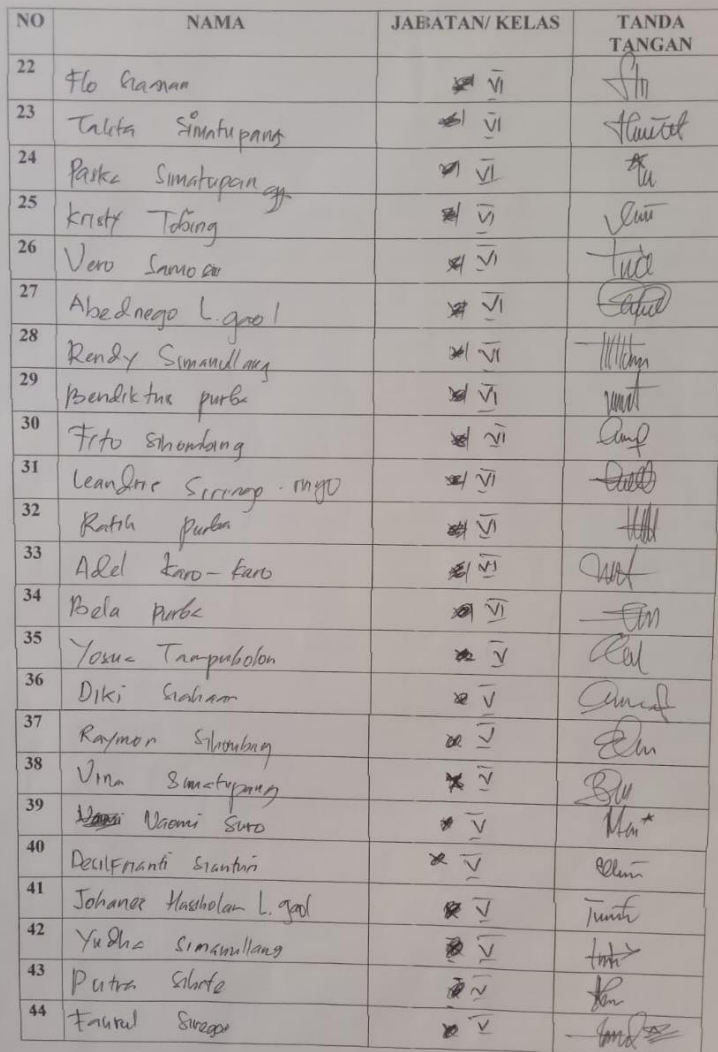 NO NAMA JABATAN/ KELAS TANDA TANGAN
22 Flo Siahaan VI
23 Talita Simatupang VI
24 Paska Simatupang VI
25 Kristy Tobing VI
26 Vero Samosir VI
27 Abednego L. gaol VI
28 Rendy Simanullang VI
29 Bendiktus purba VI
30 Fito Sihombing VI
31 Leandrie VI
32 Ratih Purba VI
33 Adel Karo-Karo VI
34 Bela purba VI
35 Yosua Tampubolon V
36 Diki Siahaan V
37 Raymon Sihombing V
38 Vina Simatupang V
39 Naomi Suro V
40 Sianturi V
41 Johanes Hasiholan L. gaol V
42 Yudha Simanullang V
43 Putra Sihite V
44 Siregar V